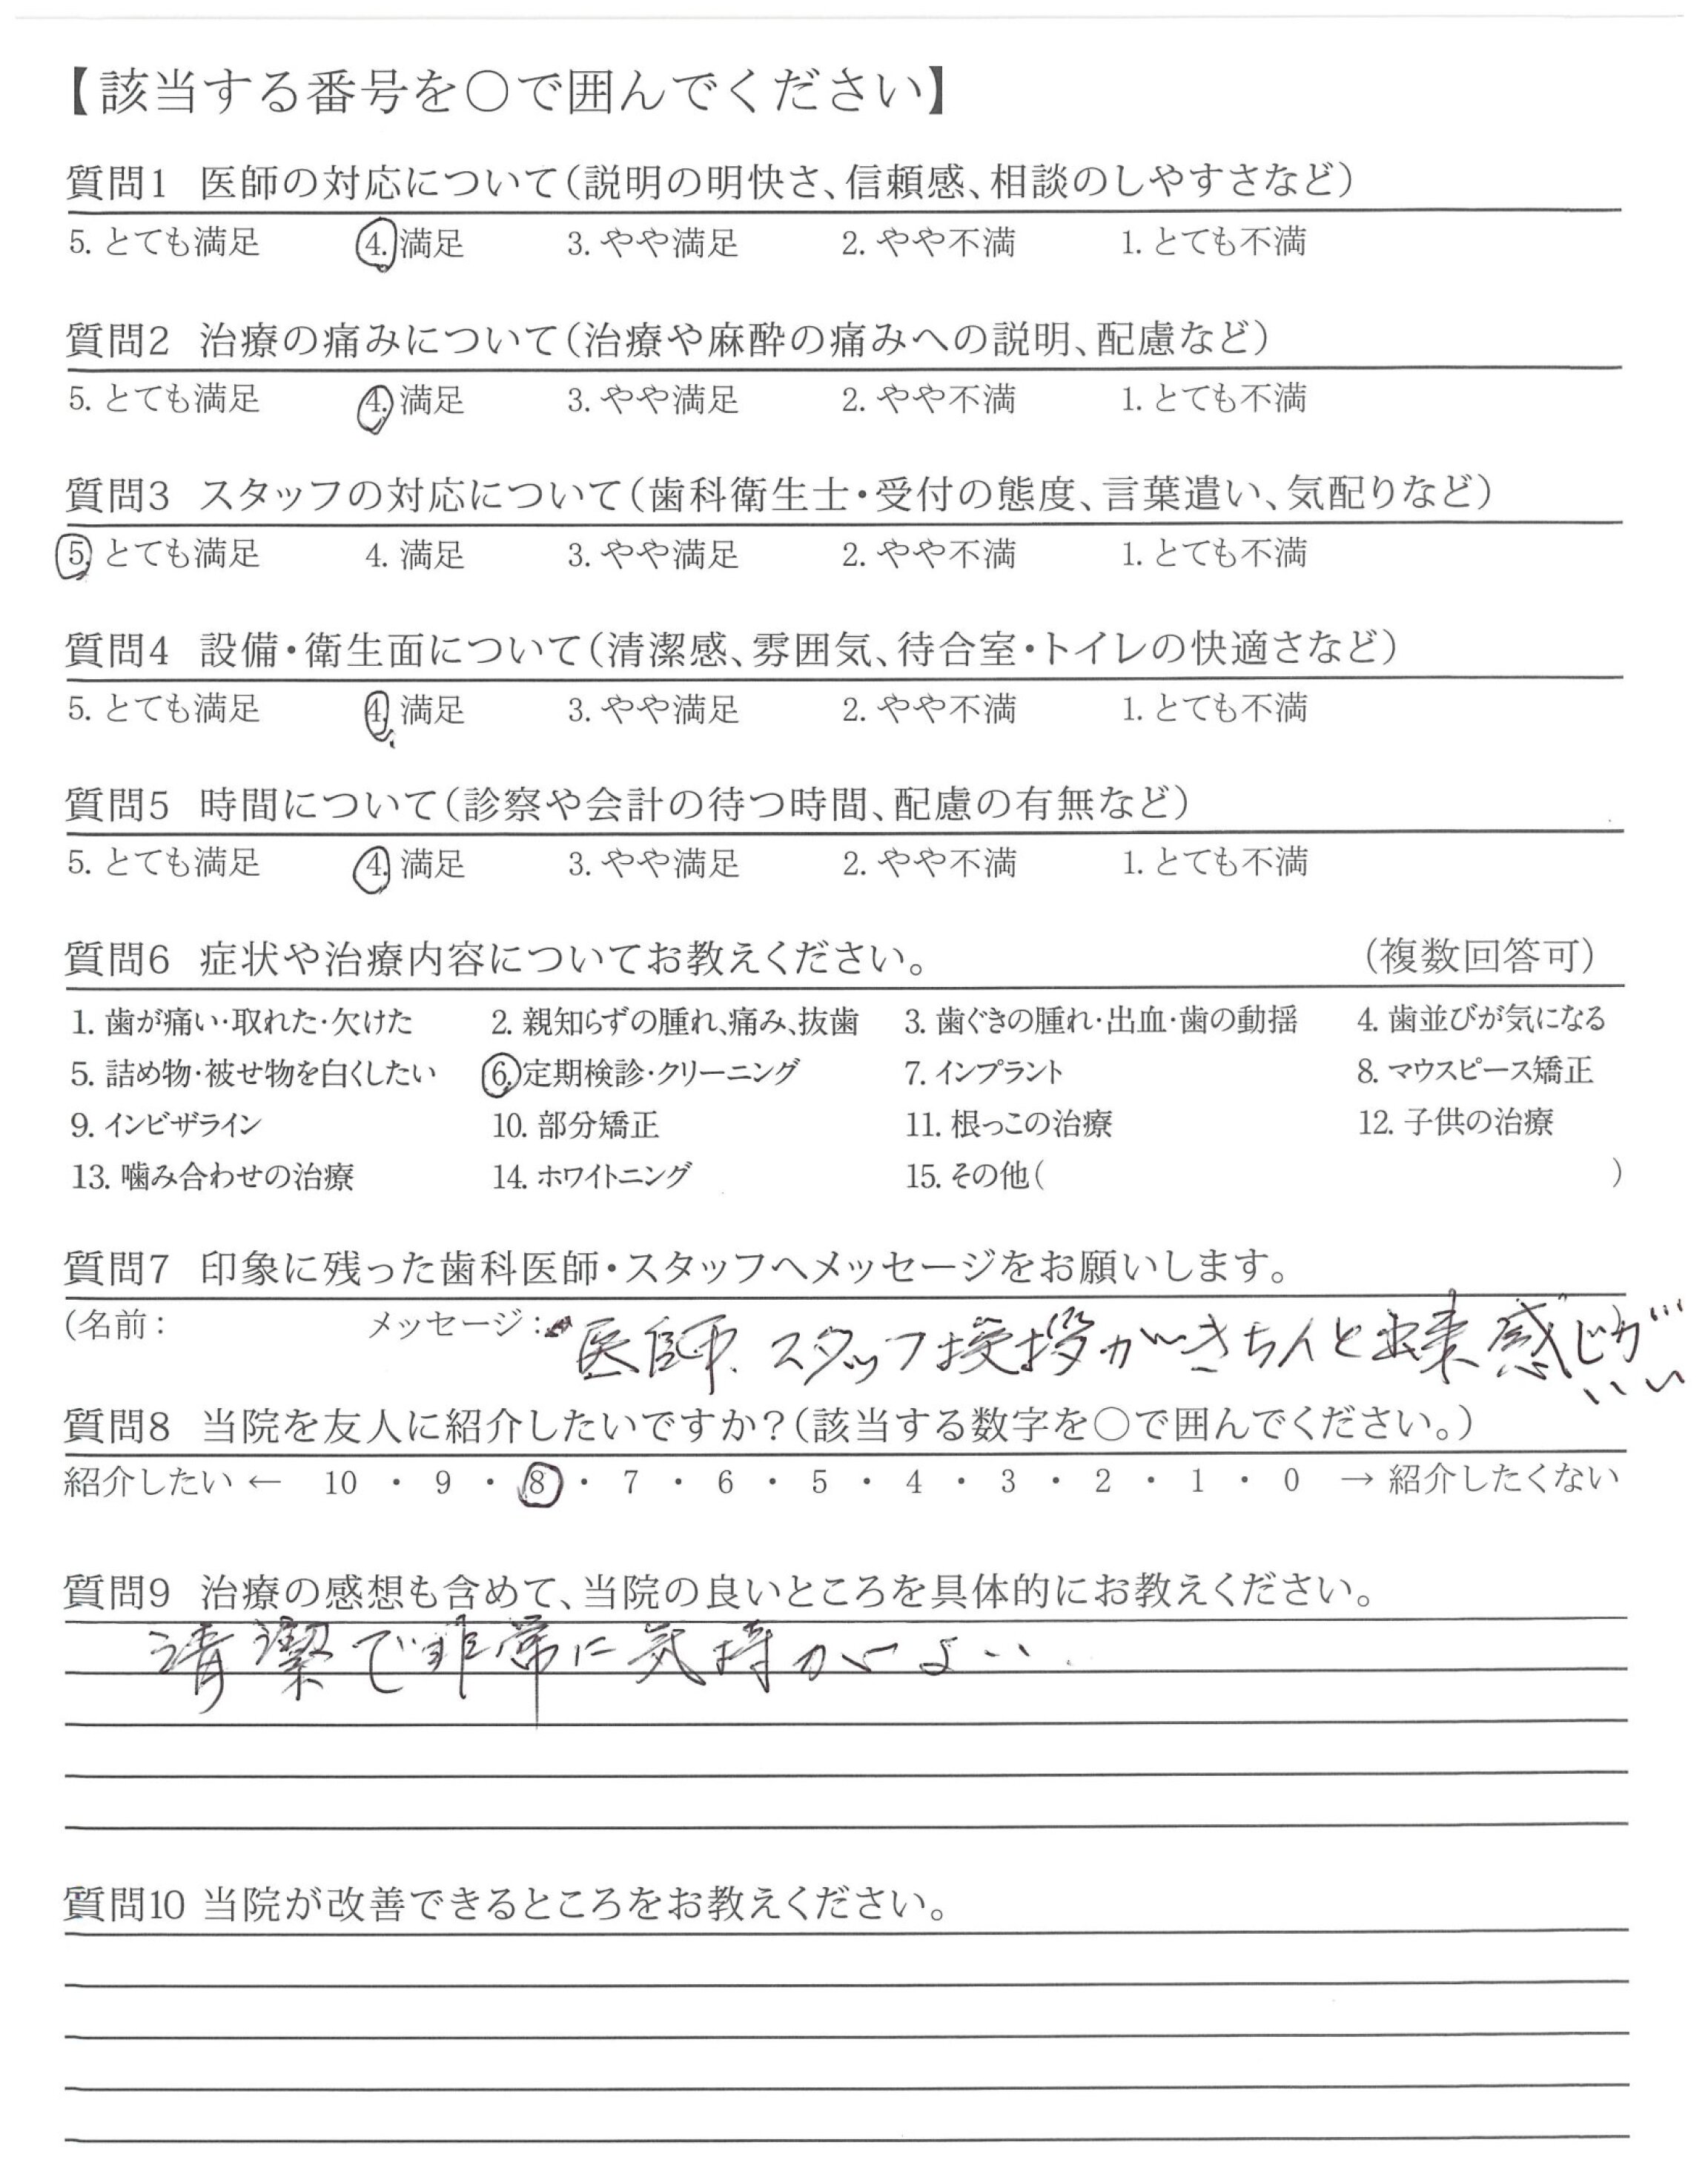 【該当する番号を○で囲んでください】
質問1 医師の対応について(説明の明快さ、信頼感、相談のしやすさなど)
5. とても満足 4. 満足 3. やや満足 2. やや不満 1. とても不満
質問2 治療の痛みについて(治療や麻酔の痛みへの説明、配慮など)
5. とても満足 4. 満足 3. やや満足 2. やや不満 1. とても不満
質問3 スタッフの対応について(歯科衛生士・受付の態度、言葉遣い、気配りなど)
5. とても満足 4. 満足 3. やや満足 2. やや不満 1. とても不満
質問4 設備・衛生面について(清潔感、雰囲気、待合室・トイレの快適さなど)
5. とても満足 4. 満足 3. やや満足 2. やや不満 1. とても不満
質問5 時間について(診察や会計の待つ時間、配慮の有無など)
5. とても満足 4. 満足 3. やや満足 2. やや不満 1. とても不満
質問6 症状や治療内容についてお教えください。 (複数回答可)
1. 歯が痛い・取れた・欠けた 2. 親知らずの腫れ、痛み、抜歯 3. 歯ぐきの腫れ・出血・歯の動揺 4. 歯並びが気になる
5. 詰め物・被せ物を白くしたい 6. 定期検診・クリーニング 7. インプラント 8. マウスピース矯正
9. インビザライン 10. 部分矯正 11. 根っこの治療 12. 子供の治療
13. 噛み合わせの治療 14. ホワイトニング 15. その他( )
質問7 印象に残った歯科医師・スタッフへメッセージをお願いします。
(名前: メッセージ: 医師、スタッフ挨拶がきちんと出来感じが
いい
質問8 当院を友人に紹介したいですか?(該当する数字を○で囲んでください。)
紹介したい ← 10 ・ 9 ・ 8 ・ 7 ・ 6 ・ 5 ・ 4 ・ 3 ・ 2 ・ 1 ・ 0 → 紹介したくない
質問9 治療の感想も含めて、当院の良いところを具体的にお教えください。
清潔で非常に気持がよい.
質問10 当院が改善できるところをお教えください。